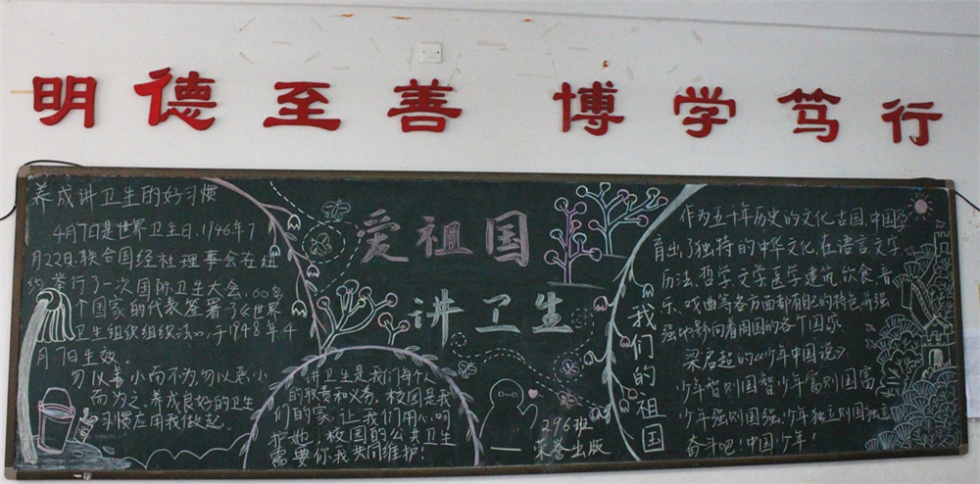 明德至善 博学笃行
养成讲卫生的好习惯
4月7日是世界卫生日,1946年7
月22日,联合国经社理事会在纽
约举行了一次国际卫生大会,60多
个国家的代表签署了《世界
卫生组织组织法》,于1948年4
月7日生效。
勿以善小而不为,勿以恶小
而为之,养成良好的卫生
习惯应用我做起。
爱祖国
讲卫生
讲卫生是我们每个人
的职责和义务,校园是我
们的家,让我们用心呵
护她,校园的公共卫生
需要你我共同维护!
296班
荣誉出版
我们的祖国
作为五千年历史的文化古国,中国
育出了独特的中华文化,在语言、文字、
历法、哲学、文学、医学、建筑、饮食、音
乐、戏曲等各方面都有自己的特色,并强
强地影响着周围的各个国家
梁启超的《少年中国说》
少年智则国智,少年富则国富,
少年强则国强,少年独立则国独立
奋斗吧!中国少年!